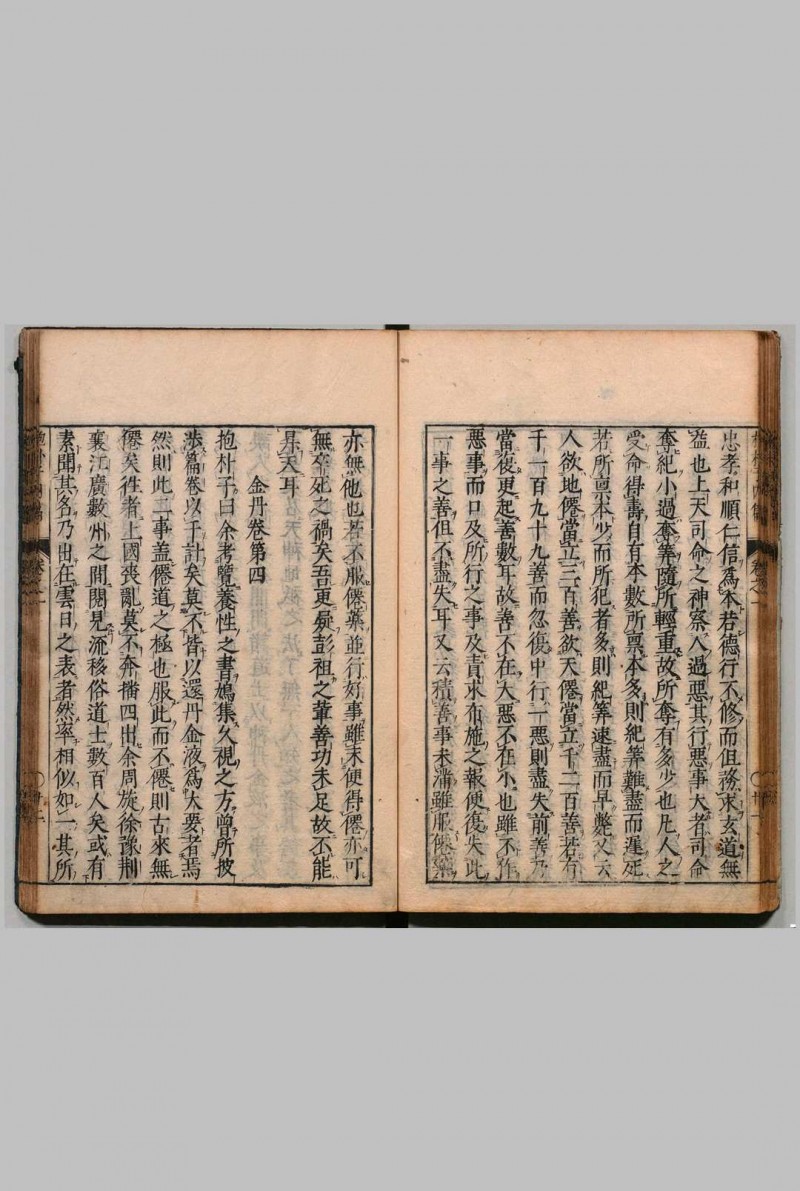 忠孝和順仁信爲本若德行不修而但務求玄道無
益也上天司命之神察人過惡其行惡事大者司命
奪紀小過奪筭隨所輕重故所奪有多少也凡人之
受命得壽自有本數所禀本多則紀筭難盡而遲死
若所禀本少而所犯者多則紀筭速盡而早斃又云
人欲地僊當立三百善欲天僊當立千二百善若有
千一百九十九善而忽復中行一惡則盡失前善乃
當復更起善數耳故善不在大惡不在小也雖不作
惡事而口及所行之事及責求布施之報便復失此
一事之善但不盡失耳又云積善事未滿雖服僊藥
亦無他也若不服僊藥並行好事雖未便得僊亦可
無卒死之禍矣吾更疑彭祖之軰善功未足故不能
昇天耳
金丹卷第四
抱朴子曰余考覽養性之書鳩集久視之方曾所披
渉篇卷以千計矣莫不皆以還丹金液爲大要者焉
然則此二事盖僊道之極也服此而不僊則古來無
僊矣徃者上國喪亂莫不奔播四出余周旋徐豫荆
襄江廣數州之間閱見流移俗道士數百人矣或有
素聞其名乃出在雲日之表者然率相似如一其所